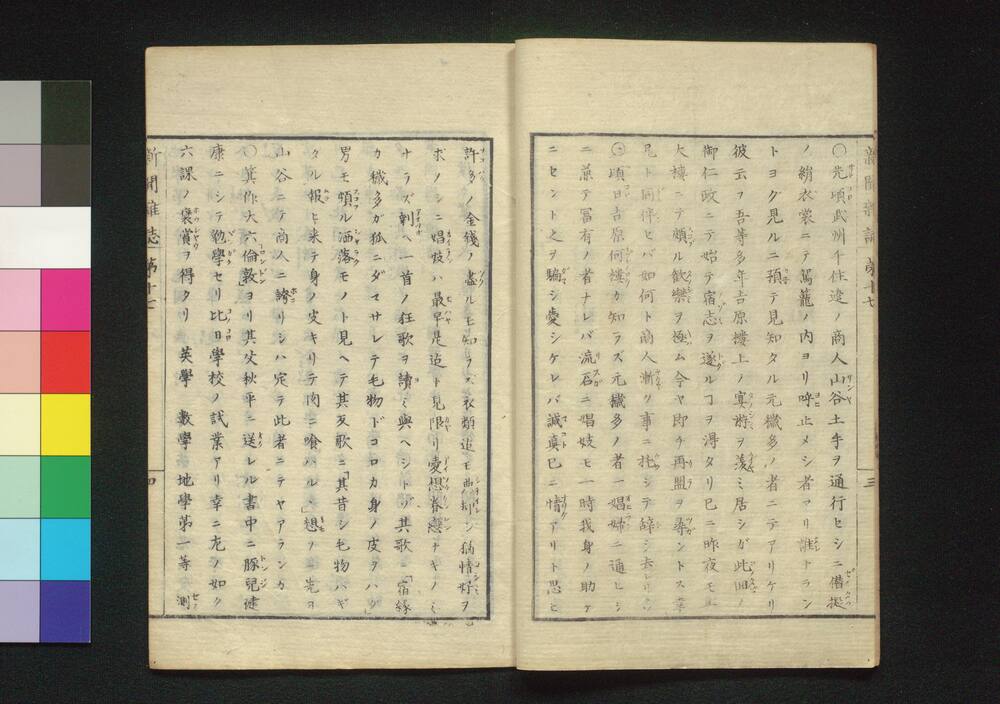 〇先頃武州千住邊ノ商人山谷土手ヲ通行セシニ僭擬
ノ絹衣裳ニテ駕籠ノ内ヨリ呼止メシ者アリ誰ナラン
トヨク見ルニ預テ見知タル元穢多ノ者ニテアリケリ
彼云フ吾等多年吉原樓上ノ宴游ヲ羨ミ居シガ此回ノ
御仁政ニテ始テ宿志ヲ遂ルヿヲ得タリ已ニ昨夜モ
大樓ニテ頗ル歓樂ヲ極ム今ヤ即チ再盟ヲ尋ントス
兄ト同伴セバ如何ト商人漸ク事ニ托シテ辞シ去レリ
〇頃日吉原何樓カ知ラズ元穢多ノ者一娼婦ニ通ヒシ
ニ兼テ冨有ノ者ナレバ流石ニ唱妓モ一時我身ノ助ケ
ニセント之ヲ騙シ愛シケレバ誠真已ニ情アリト思ヒ
新聞雜誌 第十七 三
許多ノ金錢ノ盡ルモ知ラズ衣類迄モ典却シ猶情好ヲ
求ノシニ唱妓ハ最早是迄ト見限リ愛想眷戀ナキノミ
ナラズ剰ヘ一首ノ狂歌ヲ讀ミ與ヘシトゾ其歌ニ「宿縁
カ穢多ガ狐ニダマサレテ毛物ドコロカ身ノ皮ヲハグ」
男モ頗ル洒落モノト見ヘテ其反歌ニ「其昔シ毛物ハギ
タル報ヒ来テ身ノ皮キリテ肉ニ喰ハルヽ」想フニ先ヨ
山谷ニテ商人ニ誇リシハ定テ此者ニテヤアランカ
〇箕作大六倫敦ヨリ其父秋平ニ送レル書中ニ豚兒健
康ニシテ勉學セリ比日學校ノ試業アリ幸ニ左ノ如ク
六課ノ褒賞ヲ得タリ 英學 數學 地學第一等 測
新聞雜誌 第十七 四